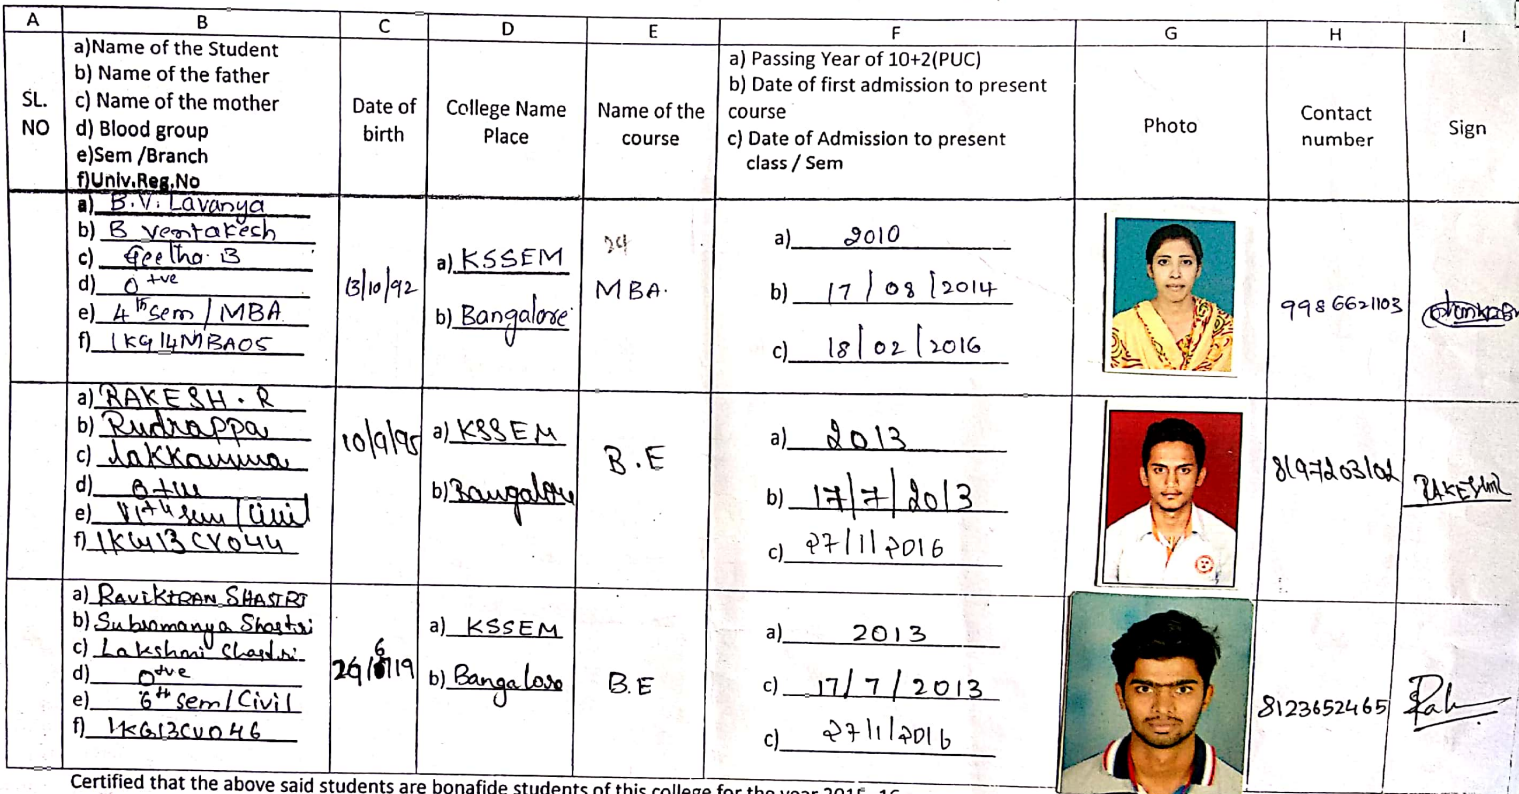 A B C D E F G H I
SL. NO
a)Name of the Student
b) Name of the father
c) Name of the mother
d) Blood group
e)Sem /Branch
f)Univ.Reg.No
Date of birth
College Name Place
Name of the course
a) Passing Year of 10+2(PUC)
b) Date of first admission to present
course
c) Date of Admission to present
class / Sem
Photo
Contact number
Sign
a) B.V. Lavanya
b) B Ventakesh
c) Geetha. B
d) O +ve
e) 4th sem / MBA
f) 1KG14MBA05
13/10/92
a) KSSEM
b) Bangalore
MBA.
a) 2010
b) 17/08/2014
c) 18/02/2016
9986621103
a) RAKESH. R
b) Rudrappa
c) Lakkamma
d)
e) VIth sem / Civil
f) 1KG13CV044
10/9/95
a) KSSEM
b) Bangalore
B.E
a) 2013
b) 17/7/2013
c) 27/1/2016
8197203102
a) RAVIKIRAN SHASTRI
b) Subramanya Shastri
c) Lakshmi Shastri
d) O+ve
e) 6th sem / Civil
f) 1KG13CV046
a) KSSEM
b) Bangalore
B.E
a) 2013
c) 17/7/2013
c) 27/1/2016
8123652465
Certified that the above said students are bonafide students of this college for the year 2015-16